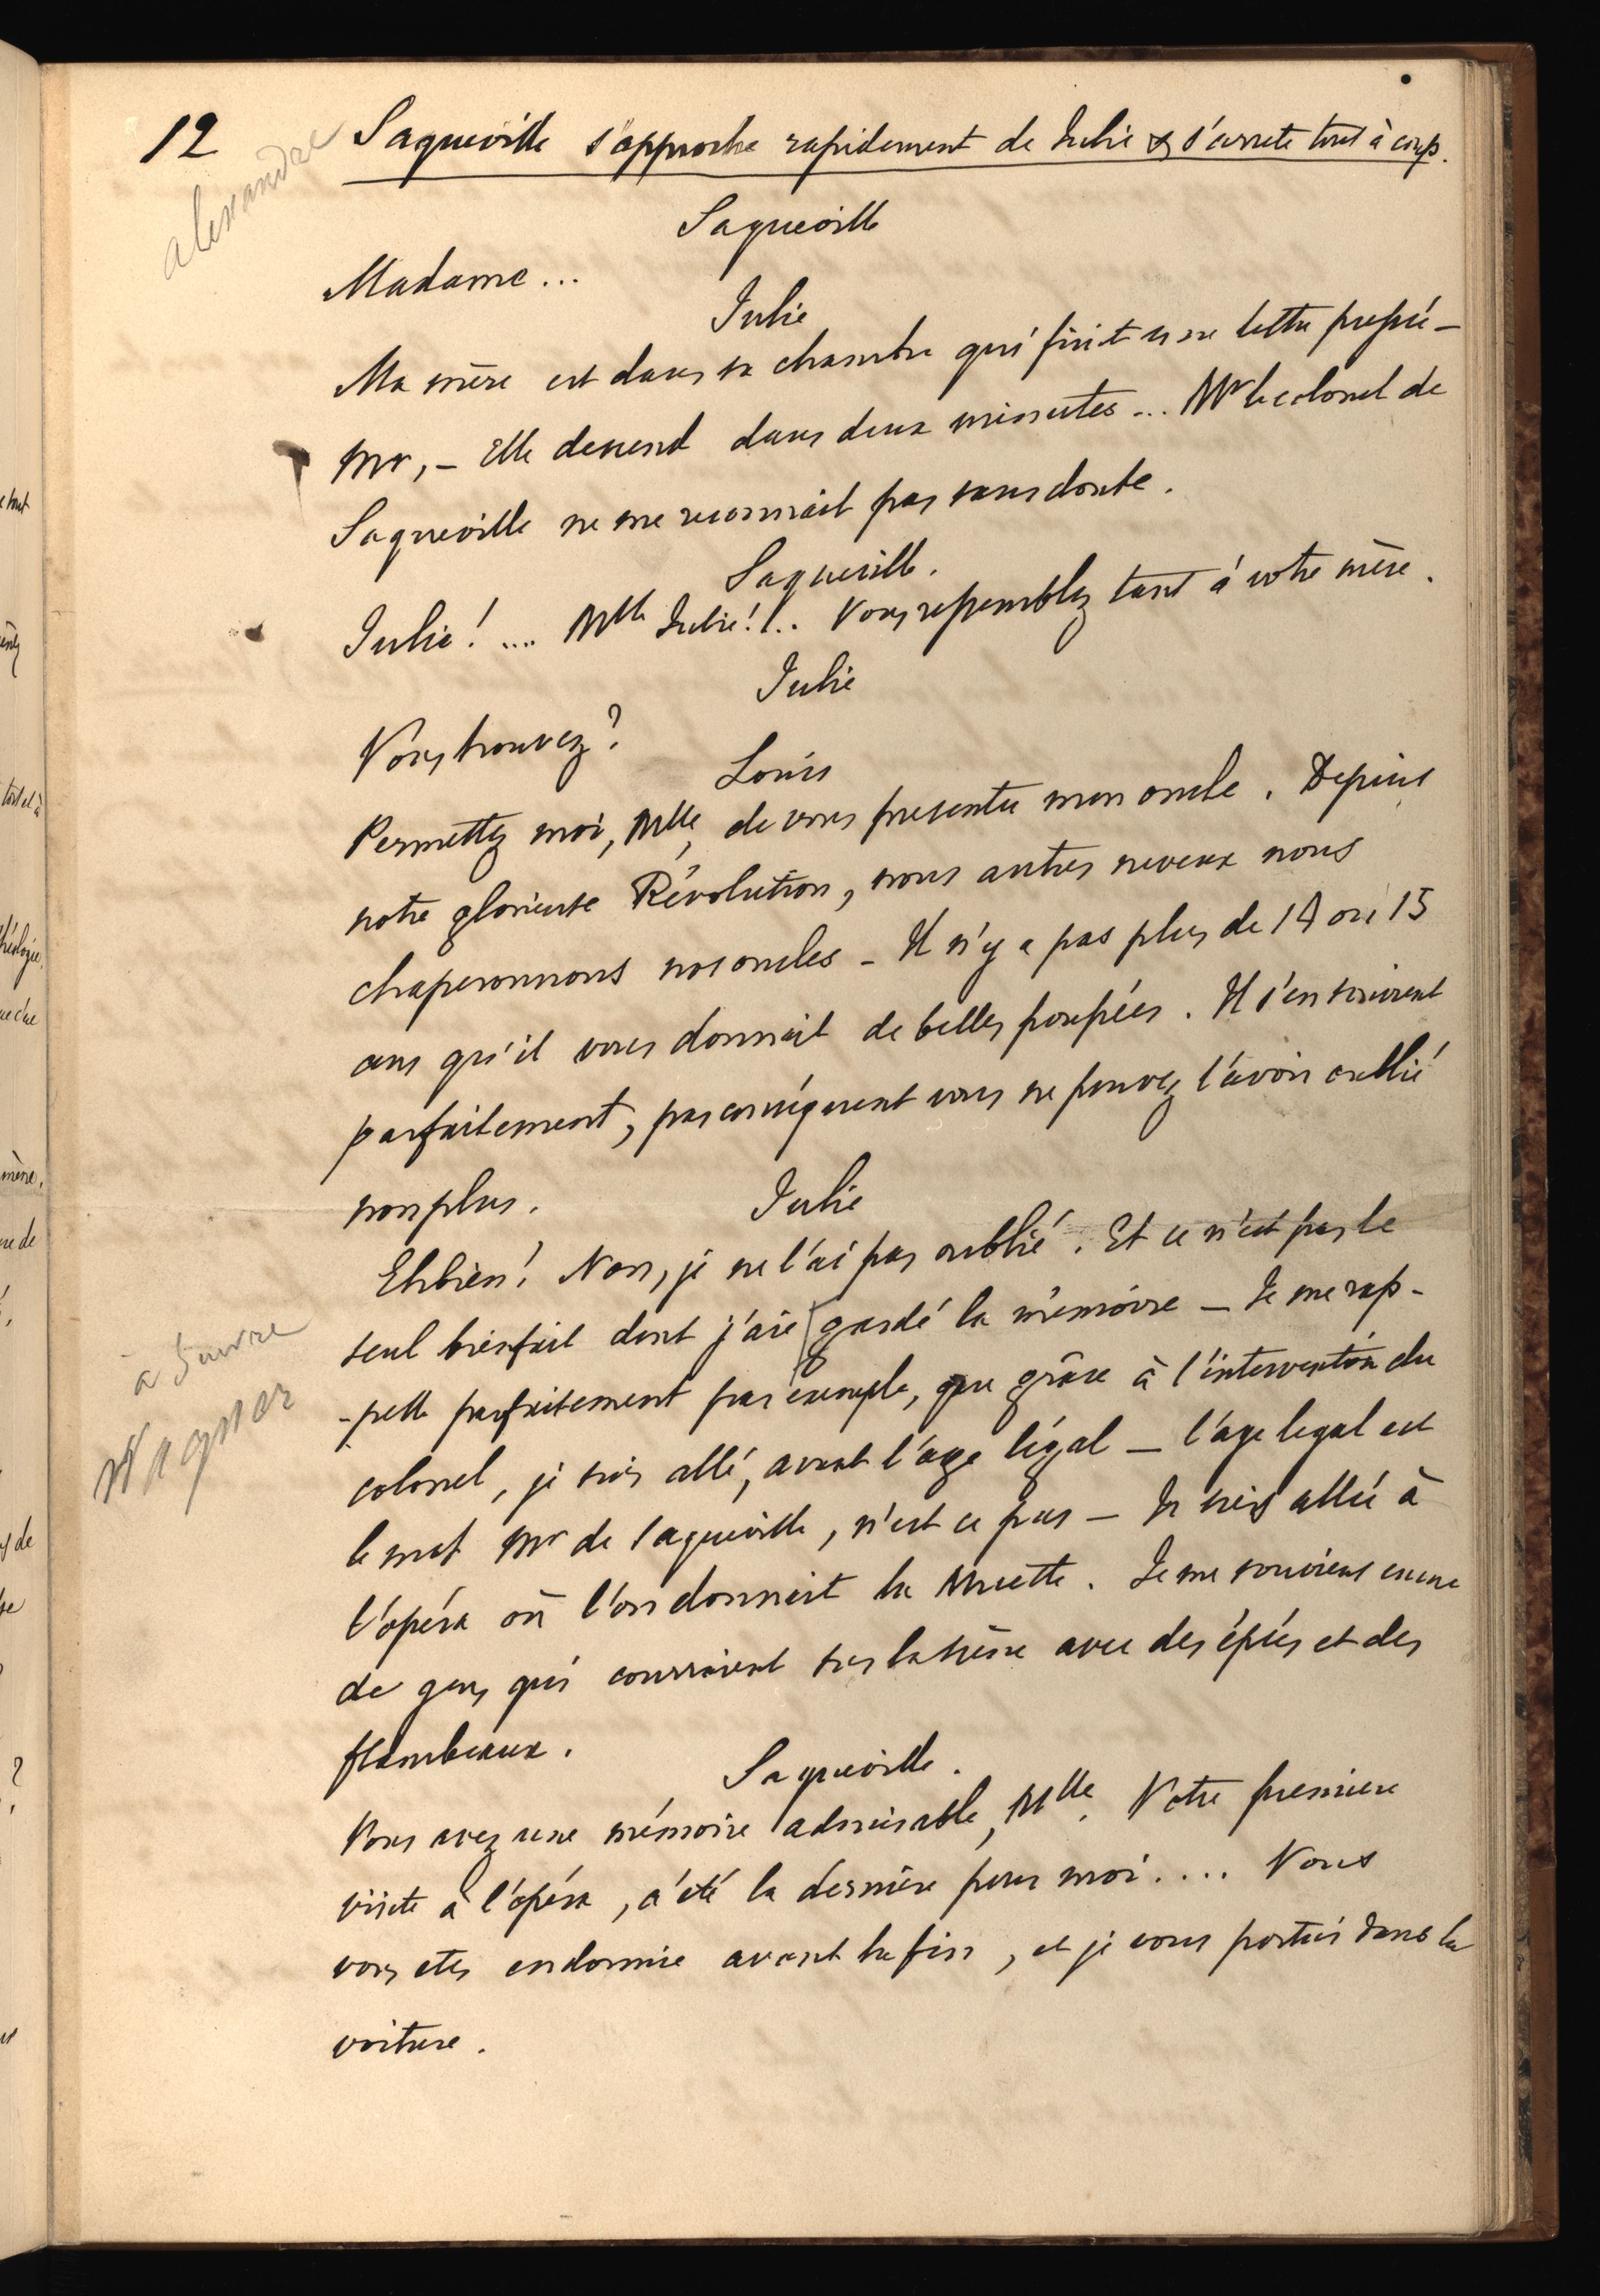 12
alexandre
Saqueville s'approche rapidement de Julie & s'arrete tout à coup.
Saqueville
Madame...
Julie
Ma mère est dans sa chambre qui finit une lettre pressée –
Mr, – Elle descend dans deux minutes... Mr le colonel de
Saqueville ne me reconnait pas sans doute.
Saqueville.
Julie! .... Mlle Julie!!.. Vous ressemblez tant à votre mère.
Julie
Vous trouvez?
Louis
Permettez moi, Mlle, de vous presenter mon oncle. Depuis
notre glorieuse Révolution, nous autres neveux nous
chaperonnons nos oncles – Il n'y a pas plus de 14 ou 15
ans qu'il vous donnait de belles poupées. Il s'en souvient
parfaitement, par conséquent vous ne pouvez l'avoir oublié
non plus.
Julie
Eh bien! Non, je ne l'ai pas oublié. Et ce n'est pas le
seul bienfait dont j'aie gardé la mémoire – Je me rap-
-pelle parfaitement par exemple, que grâce à l'intervention du
à Suivre
Wagner
colonel, je suis allé, avant l'age légal – l'age legal est
le mot Mr de Saqueville, n'est ce pas – Je suis allée à
l'opéra où l'on donnait la Muette. Je me souviens encore
de gens qui couraient sur la scène avec des épées et des
flambeaux.
Saqueville.
Vous avez une mémoire admirable, Mlle. Votre premiere
visite à l'opéra, a été la dernière pour moi.... Vous
vous etes endormie avant la fin, et je vous portais dans la
voiture.